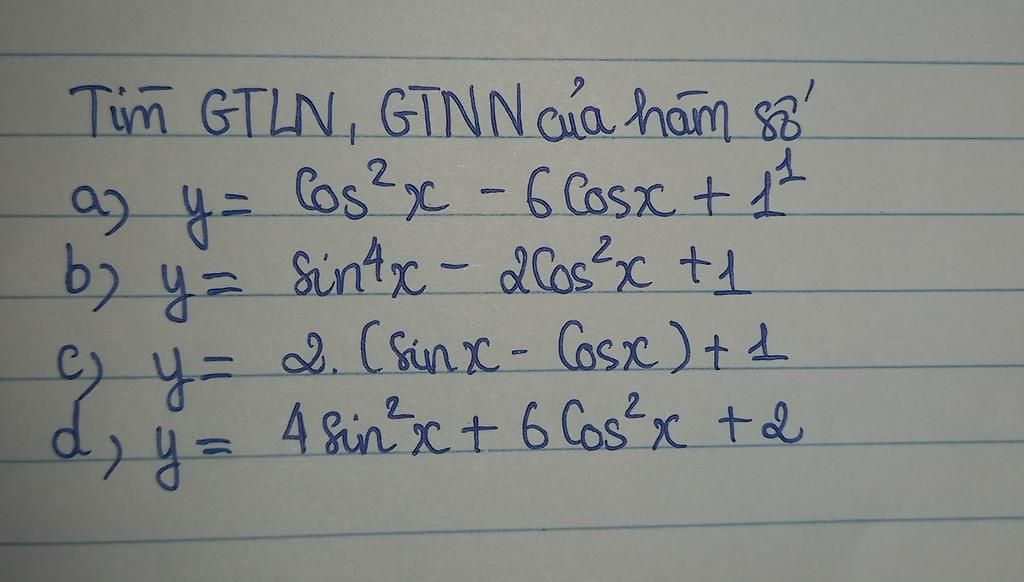 Tìm GTLN, GTNN của hàm số
a) y = Cos²x - 6 Cosx + 1¹
b) y = Sin⁴x - 2Cos²x + 1
c) y = 2. (Sinx - Cosx) + 1
d) y = 4 Sin²x + 6 Cos²x + 2